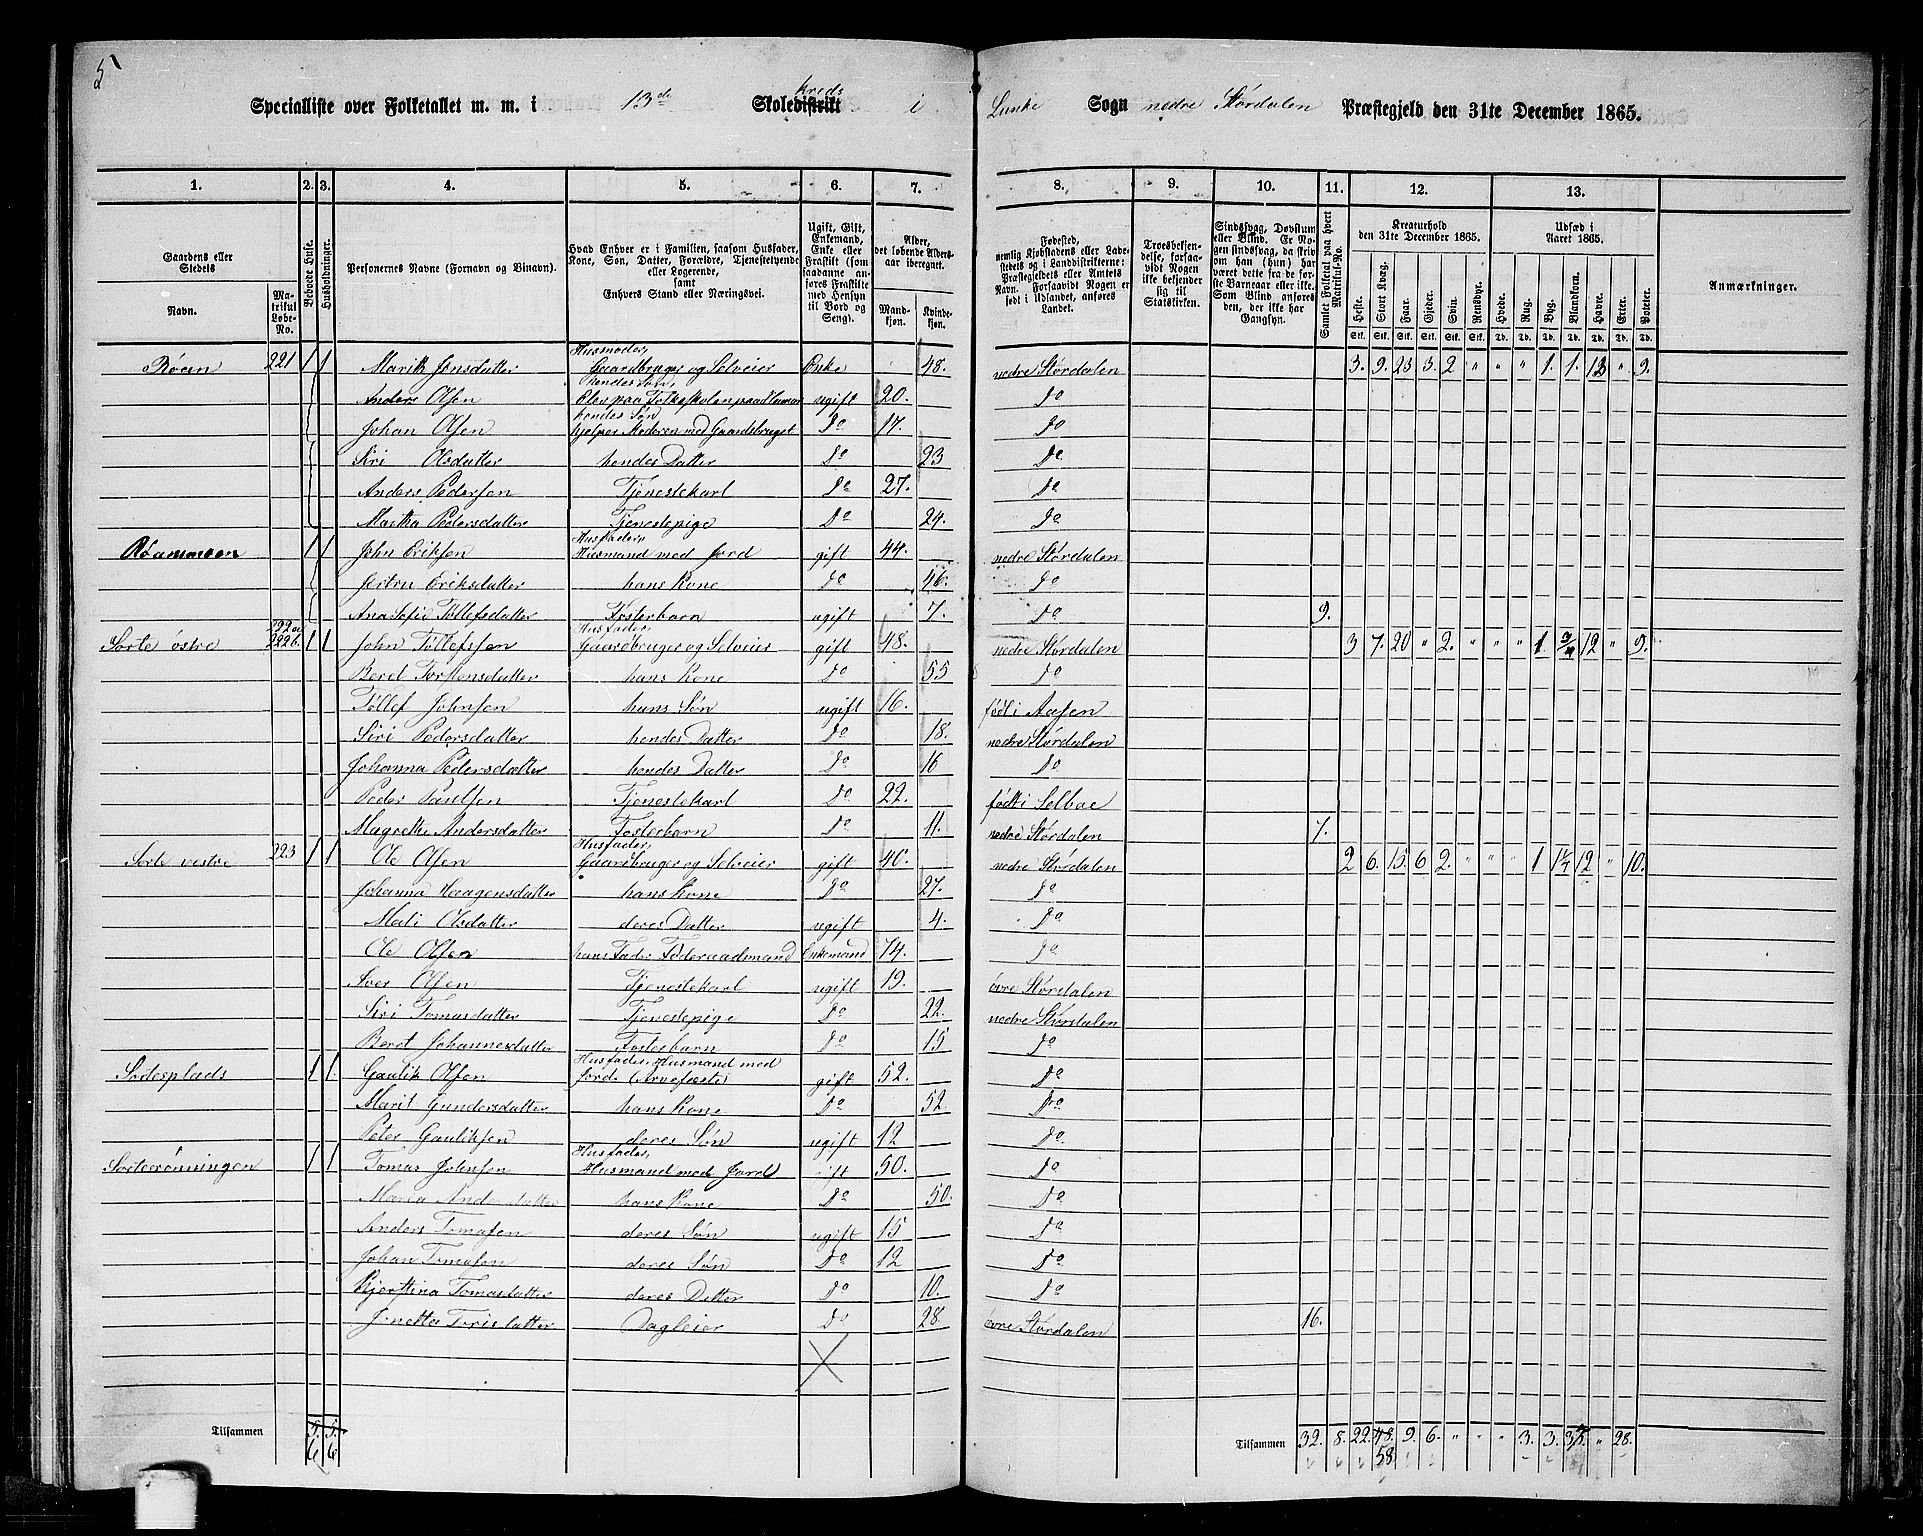 5
Specialliste over Folketallet m. m. i 13de Skoledistrikt kreds i Lunke Sogn nedre Størdalen Præstegjeld den 31te December 1865.
1. 2. 3. 4. 5. 6. 7. 8. 9. 10. 11. 12. 13.
Gaardens eller Stedets
Navn.
Matrikul Løbe-No.
Beboede Huse.
Husholdninger.
Personernes Navne (Fornavn og Binavn).
Hvad Enhver er i Familien, saasom Husfader, Kone, Søn, Datter, Forældre, Tjenestetyende eller Logerende, samt Enhvers Stand eller Næringsvei.
Ugift, Gift, Enkemand, Enke eller Fraskilt (som saadanne anføres Fraskilte med Hensyn til Bord og Seng).
Alder, det løbende Aldersaar iberegnet.
Mandkjøn. Kvindekjøn.
Fødested, nemlig Kjøbstadens eller Ladestedets og i Landdistrikterne: Præstegjeldets eller Amtets Navn. Forsaavidt Nogen er født i Udlandet, anføres Landet.
Troesbekjendelse, forsaavidt Nogen ikke bekjender sig til Statskirken.
Sindssvag, Døvstum eller Blind. Er Nogen sindssvag, da skrives om han (hun) har været dette fra de første Barneaar eller ikke. Som Blind anføres den, der ikke har Gangsyn.
Samlet Folketal paa hvert Matrikul-No.
Kreaturhold den 31te December 1865.
Heste. Stort Kvæg. Faar. Gjeder. Svin. Rensdyr.
Udsæd i Aaret 1865.
Hvede. Rug. Byg. Blandkorn. Havre. Erter. Poteter.
Anmærkninger.
Røeen 221 1 1 Marith Jensdatter Husmoder, Gaardbruger og Selveier Enke 48. nedre Størdalen 3. 9. 23 3. 2 " " " 1. 1. 13 " 9.
Anders Olsen hendes Søn, Elev paa Folkeskolen ugift 20. Do
Johan Olsen hendes Søn hjelper Moderen med Gaardsbruget Do 17. Do
Siri Olsdatter hendes Datter Do 23 Do
Anders Pedersen Tjenestekarl Do 27. Do
Martha Pedersdatter Tjenestepige Do 24. Do
1 1 John Eriksen Husfader, Husmand med Jord gift 44. nedre Størdalen
Jertru Eriksdatter hans Kone Do 46. Do
Ana Sofie Tollefsdatter Fosterbarn ugift 7. Do 9.
Sorte østre 222a 222b 1 1 John Tollefssen Husfader, Gaardbruger og Selveier gift 48. nedre Størdalen 3 7. 20 " 2. " " " 1 3/4 12 " 9.
Beret Torstensdatter hans Kone Do 55 Do
Tollef Johnsen hans Søn ugift 16. født i Aasen
Siri Pedersdatter hendes Datter Do 18. nedre Størdalen
Johanna Pedersdatter hendes Datter Do 16 Do
Peder Paulsen Tjenestekarl Do 22. født i Selboe
Magrethe Andersdatter Fosterbarn Do 11. nedre Størdalen 7.
Sorte vestre 223 1 1 Ole Olsen Husfader, Gaardbruger og Selveier gift 40. nedre Størdalen 2 6. 15 6 2. " " " 1 1 1/4 12 " 10.
Johanna Haagensdatter hans Kone Do 27. Do
Mali Olsdatter deres Datter ugift 4. Do
Ole Olsen hans Fader Føderaadsmand Enkemand 74. Do
Iver Olsen Tjenestekarl ugift 19. øvre Størdalen
Siri Tomasdatter Tjenestepige Do 22. nedre Størdalen
Beret Johannesdatter Fosterbarn Do 15 Do
Sorteplads 1 1 Gaulik Olsen Husfader, Husmand med Jord (Arvefæste) gift 52. Do
Marit Gundersdatter hans Kone Do 52. Do
Peter Gauliksen deres Søn ugift 12 Do
Sorterønningen 1 1 Tomas Johnsen Husfader, Husmand med Jord gift 50. Do
Maria Andersdatter hans Kone Do 50. Do
Anders Tomasen deres Søn ugift 15 Do
Johan Tomasen deres Søn Do 12 Do
Kjerstina Tomasdatter deres Datter Do 10. Do
Jonetta Torisdatter Dagleier Do 28. øvre Størdalen 16.
Tilsammen 5. 5. Tilsammen 32. 8. 22. 48. 9. 6. " " " 3. 3. " 28.
6 6 58